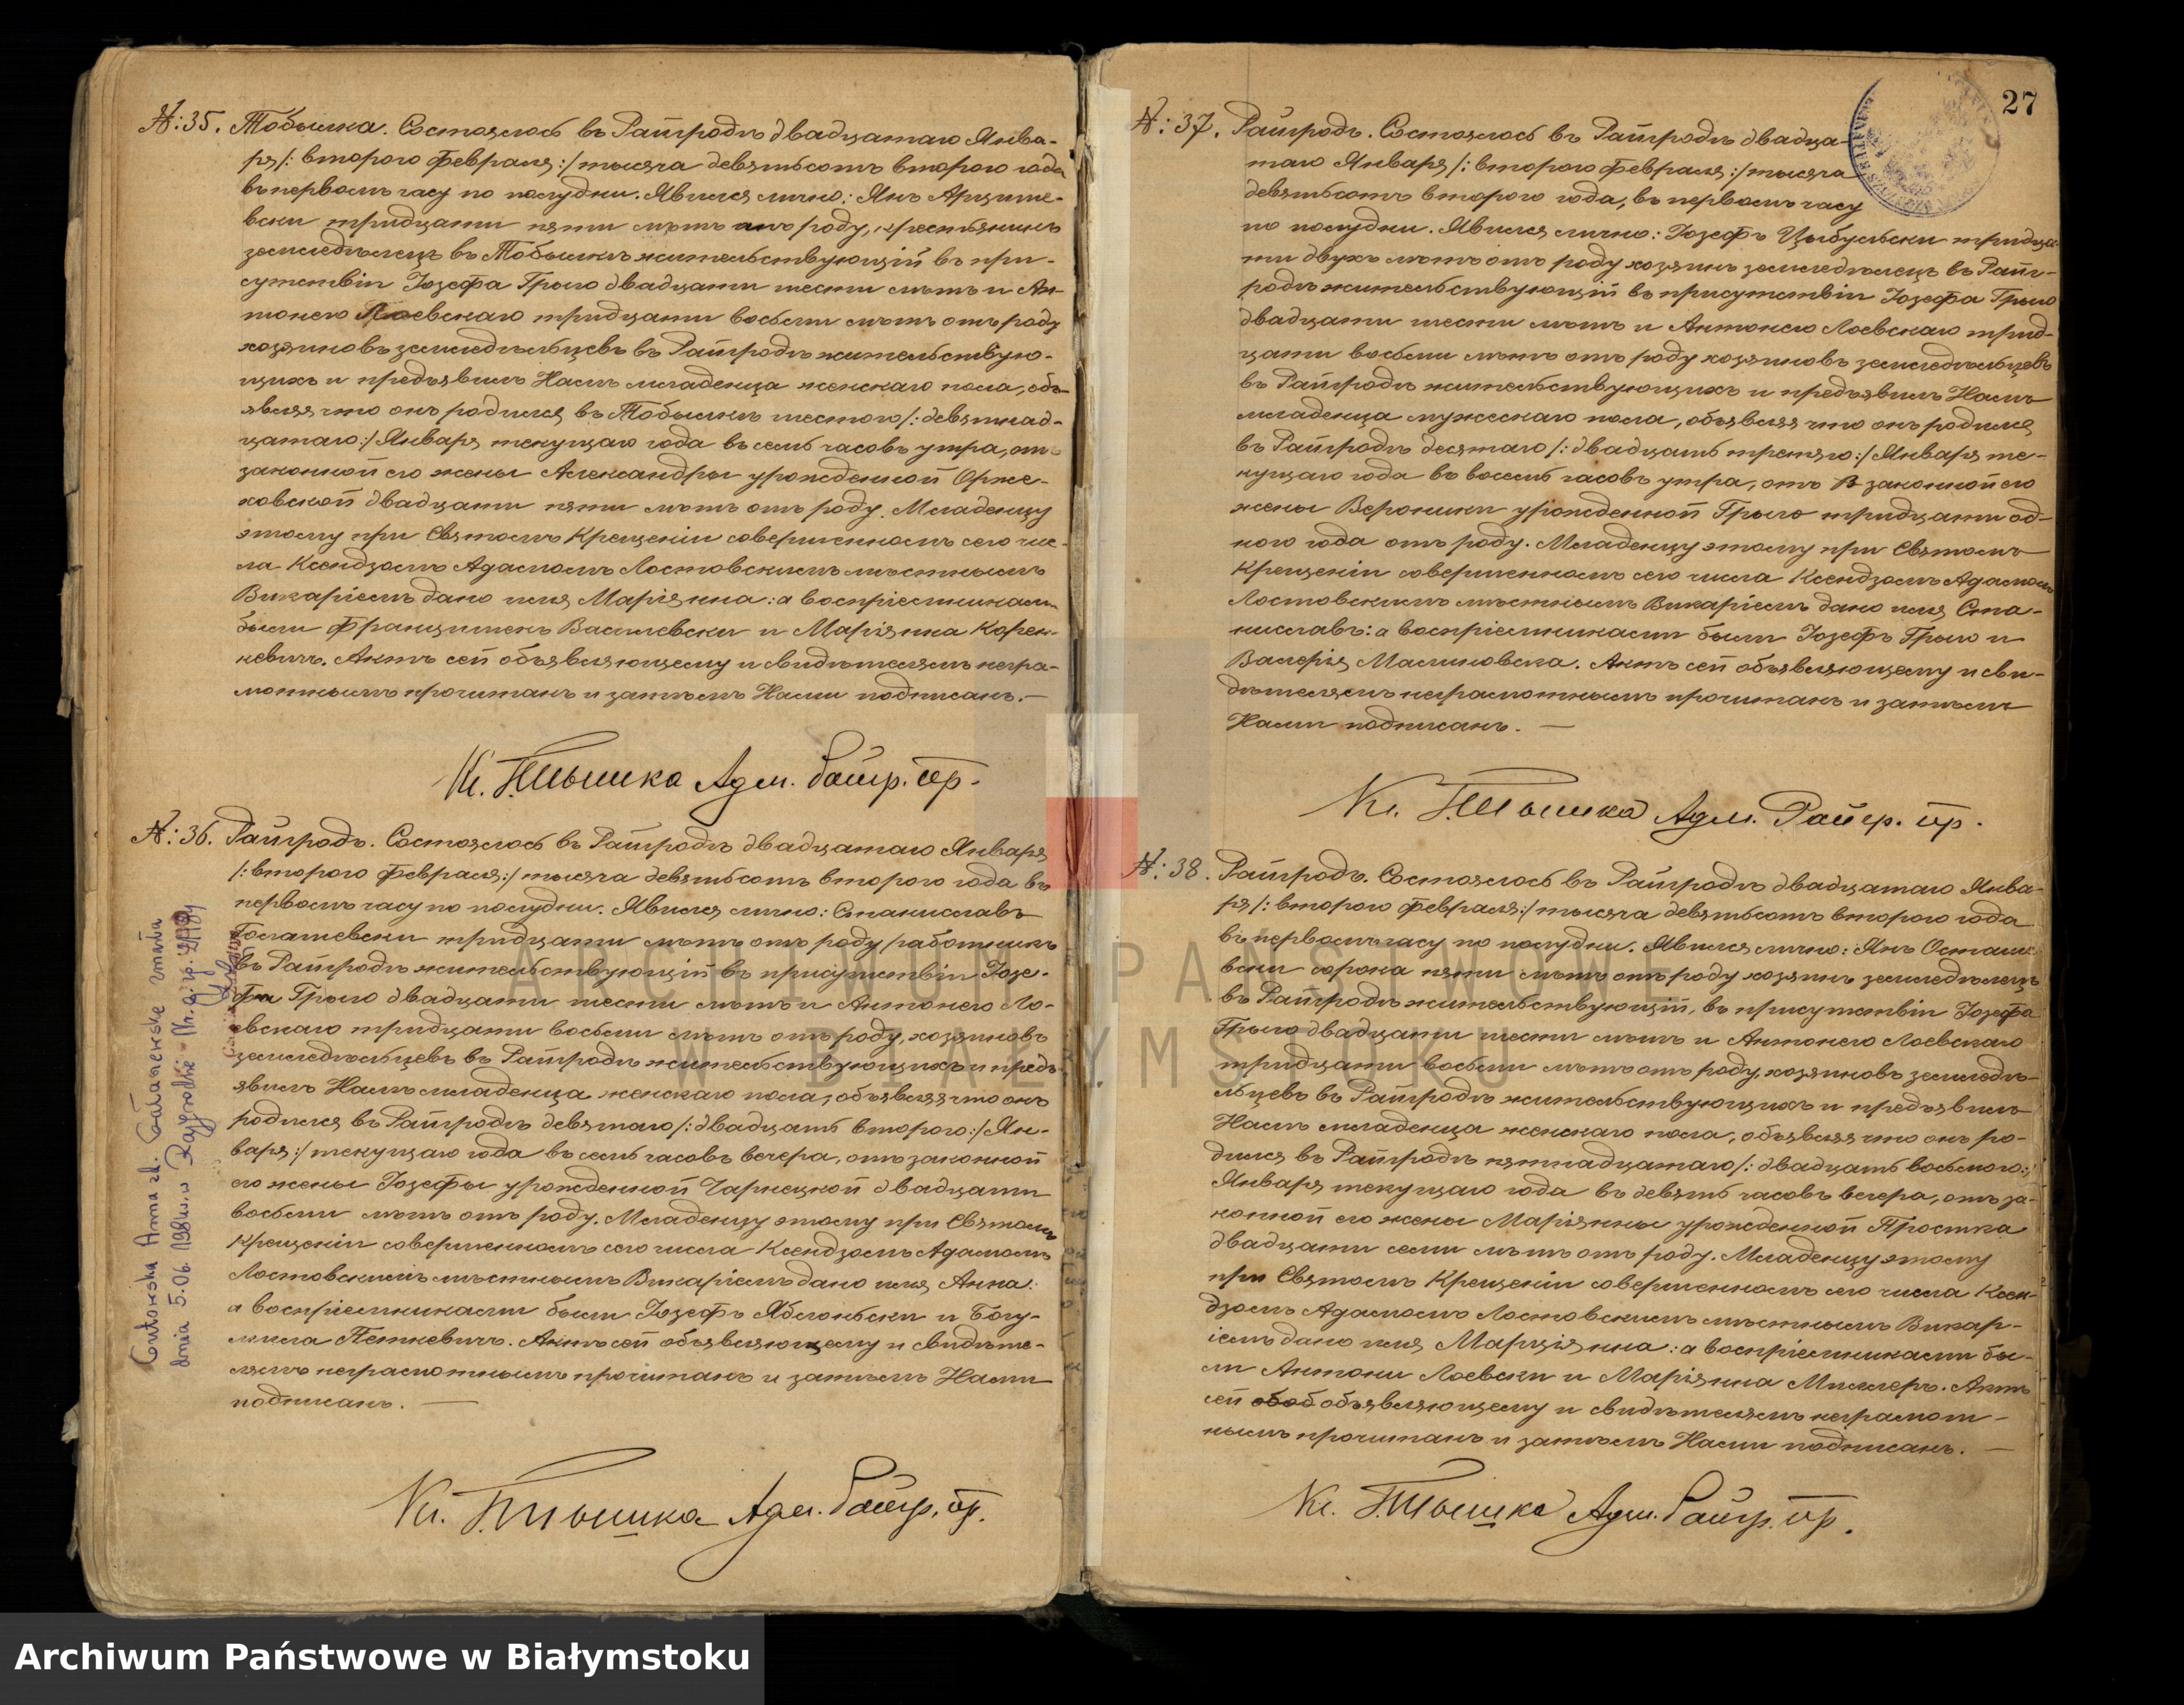 №: 35. Тобылка. Состоялось въ Райгродѣ двадцатаго Янва-
ря /: второго Февраля :/ тысяча девятьсотъ второго года
въ первомъ часу по полудни. Явился лично: Янъ Арцише-
вски тридцати пяти лѣтъ отъ роду, крестьянинъ
земледѣлецъ въ Тобылкѣ жительствующій въ при-
сутствіи Іозефа Грыго двадцати шести лѣтъ и Ан-
тонего Лоевскаго тридцати восьми лѣтъ отъ роду
хозяиновъ земледѣльцевъ въ Райгродѣ жительствую-
щихъ и предъявилъ Намъ младенца женскаго пола, объ-
являя что онъ родился въ Тобылкѣ шестого /: девятнад-
цатаго :/ Января текущаго года въ семь часовъ утра, отъ
законной его жены Александры урожденной Орже-
ховской двадцати пяти лѣтъ отъ роду. Младенцу
этому при Святомъ Крещеніи совершенномъ сего чис-
ла Ксендзомъ Адамомъ Лостовскимъ мѣстнымъ
Викаріемъ дано имя Маріянна: а воспріемниками
были Францишекъ Василевски и Маріянна Корен-
кевичъ. Актъ сей объявляющему и свидѣтелямъ негра-
мотнымъ прочитанъ и затѣмъ Нами подписанъ. —
Кс. П. Тышка Адм. Райгр. пр.
№: 36. Райгродъ. Состоялось въ Райгродѣ двадцатаго Января
/: второго Февраля :/ тысяча девятьсотъ второго года въ
первомъ часу по полудни. Явился лично: Станиславъ
Голашевски тридцати лѣтъ отъ роду, работникъ
въ Райгродѣ жительствующій въ присутствіи Іозе-
фа Грыго двадцати шести лѣтъ и Антонего Ло-
евскаго тридцати восьми лѣтъ отъ роду, хозяиновъ
земледѣльцевъ въ Райгродѣ жительствующихъ и предъ-
явилъ Намъ младенца женскаго пола, объявляя что онъ
родился въ Райгродѣ девятаго /: двадцать второго :/ Ян-
варя :/ текущаго года въ семь часовъ вечера, отъ законной
его жены Іозефы урожденной Чарнецкой двадцати
восьми лѣтъ отъ роду. Младенцу этому при Святомъ
Крещеніи совершенномъ сего числа Ксендзомъ Адамомъ
Лостовскимъ мѣстнымъ Викаріемъ дано имя Анна:
а воспріемниками были Іозефъ Яблоньски и Богу-
мила Петкевичъ. Актъ сей объявляющему и свидѣте-
лямъ неграмотнымъ прочитанъ и затѣмъ Нами
подписанъ. —
Кс. П. Тышка Адм. Райгр. пр.
Anna zd. zmarła
dnia 5.06. 1984 r. w Rajgrodzie
27
№: 37. Райгродъ. Состоялось въ Райгродѣ двадца-
таго Января /: второго Февраля :/ тысяча
девятьсотъ второго года, въ первомъ часу
по полудни. Явился лично: Іозефъ Цыбульски тридца-
ти двухъ лѣтъ отъ роду хозяинъ земледѣлецъ въ Райг-
родѣ жительствующій въ присутствіи Іозефа Грыго
двадцати шести лѣтъ и Антонего Лоевскаго трид-
цати восьми лѣтъ отъ роду хозяиновъ земледѣльцевъ
въ Райгродѣ жительствующихъ и предъявилъ Намъ
младенца мужескаго пола, объявляя что онъ родился
въ Райгродѣ десятаго /: двадцать третяго :/ Января те-
кущаго года въ восемь часовъ утра, отъ законной его
жены Вероники урожденной Грыго тридцати од-
ного года отъ роду. Младенцу этому при Святомъ
Крещеніи совершенномъ сего числа Ксендзомъ Адамомъ
Лостовскимъ мѣстнымъ Викаріемъ дано имя Ста-
ниславъ: а воспріемниками были Іозефъ Грыго и
Валерія Малиновска. Актъ сей объявляющему и сви-
дѣтелямъ неграмотнымъ прочитанъ и затѣмъ
Нами подписанъ. —
Кс. П. Тышка Адм. Райгр. пр.
№: 38. Райгродъ. Состоялось въ Райгродѣ двадцатаго Янва-
ря /: второго Февраля :/ тысяча девятьсотъ второго года
въ первомъ часу по полудни. Явился лично: Янъ Осташе-
вски сорока пяти лѣтъ отъ роду хозяинъ земледѣлецъ
въ Райгродѣ жительствующій, въ присутствіи Іозефа
Грыго двадцати шести лѣтъ и Антонего Лоевскаго
тридцати восьми лѣтъ отъ роду, хозяиновъ земледѣ-
льцевъ въ Райгродѣ жительствующихъ и предъявилъ
Намъ младенца женскаго пола, объявляя что онъ ро-
дился въ Райгродѣ пятнадцатаго /: двадцать восьмого :/
Января текущаго года въ девять часовъ вечера, отъ за-
конной его жены Маріянны урожденной Простка
двадцати семи лѣтъ отъ роду. Младенцу этому
при Святомъ Крещеніи совершенномъ сего числа Ксен-
дзомъ Адамомъ Лостовскимъ мѣстнымъ Викар-
іемъ дано имя Марціянна: а воспріемниками бы-
ли Антони Лоевски и Маріянна Миллеръ. Актъ
сей объявляющему и свидѣтелямъ неграмот-
нымъ прочитанъ и затѣмъ Нами подписанъ. —
Кс. П. Тышка Адм. Райгр. пр.
ARCHIWUM PAŃSTWOWE
W BIAŁYMSTOKU
Archiwum Państwowe w Białymstoku